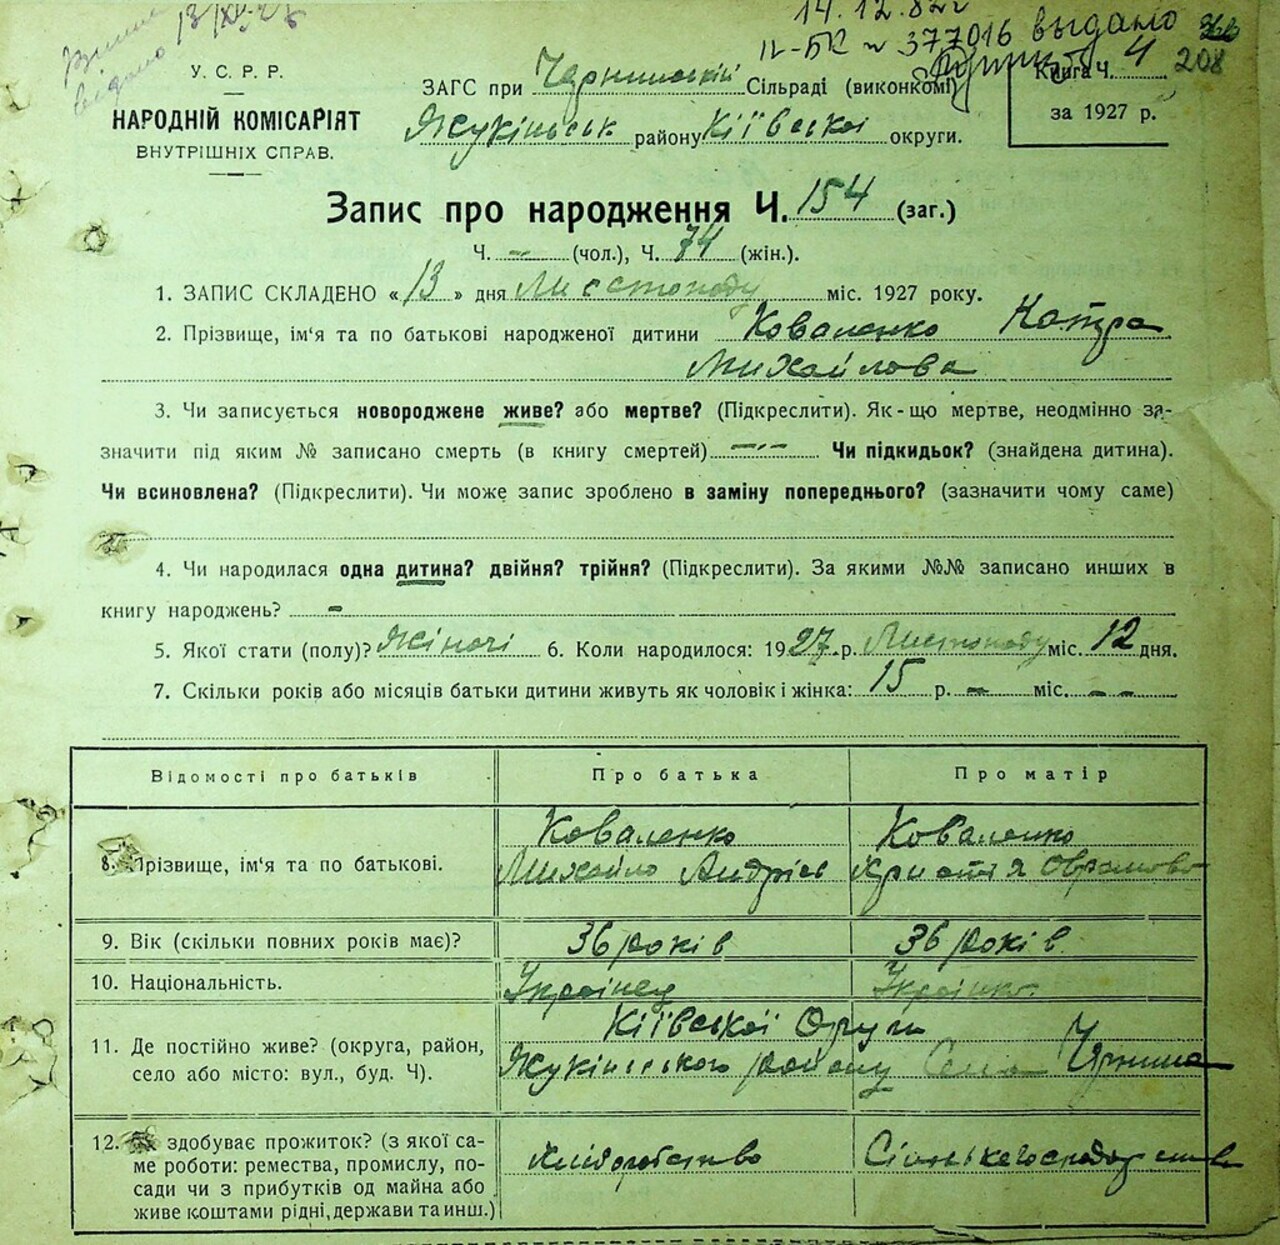 14.12.82г
ІІ-БК № 377016 выдано
208
У. С. Р. Р.
НАРОДНІЙ КОМІСАРІЯТ
ВНУТРІШНІХ СПРАВ.
ЗАГС при Чернинській Сільраді (виконкомі)
Жукінськ району Київської округи.
Книга Ч. 4
за 1927 р.
Запис про народження Ч. 154 (заг.)
Ч. — (чол.), Ч. 74 (жін.).
1. ЗАПИС СКЛАДЕНО «13» дня Листопаду міс. 1927 року.
2. Прізвище, ім'я та по батькові народженої дитини Коваленко Катра
Михайлова
3. Чи записується новороджене живе? або мертве? (Підкреслити). Як-що мертве, неодмінно за-
значити під яким № записано смерть (в книгу смертей) — Чи підкидьок? (знайдена дитина).
Чи всиновлена? (Підкреслити). Чи може запис зроблено в заміну попереднього? (зазначити чому саме)
4. Чи народилася одна дитина? двійня? трійня? (Підкреслити). За якими №№ записано инших в
книгу народжень? -
5. Якої стати (полу)? Жіночі 6. Коли народилося: 1927 р. Листопаду міс. 12 дня.
7. Скільки років або місяців батьки дитини живуть як чоловік і жінка: 15 р. - міс. - -
Відомості про батьків Про батька Про матір
8. Прізвище, ім'я та по батькові. Коваленко Михайло Андріїв Коваленко Христія Оврамова
9. Вік (скільки повних років має)? 36 років 36 років
10. Національність. Українец Українка
11. Де постійно живе? (округа, район, село або місто: вул., буд. Ч). Київської Округи
Жукінського району Село Чернин
12. здобуває прожиток? (з якої са-
ме роботи: ремества, промислу, по-
сади чи з прибутків од майна або
живе коштами рідні, держави та инш.)
хліборобство Сільське господарство